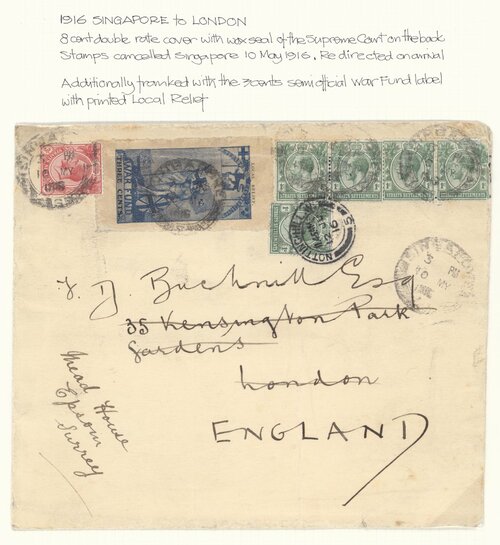 1916 SINGAPORE to LONDON
8 cent double rate cover with wax seal of the Supreme Court on the back
Stamps cancelled Singapore 10 May 1916. Redirected on arrival
Additionally franked with the 3 cents semi official War Fund label
with printed Local Relief
WAR FUND
THREE CENTS
STRAITS SETTLEMENTS
STRAITS SETTLEMENTS
STRAITS SETTLEMENTS
STRAITS SETTLEMENTS
NOTTING HILL
Bucknill Esq
35 Kensington Park
Gardens
London
ENGLAND
Mead House
Epsom
Surrey